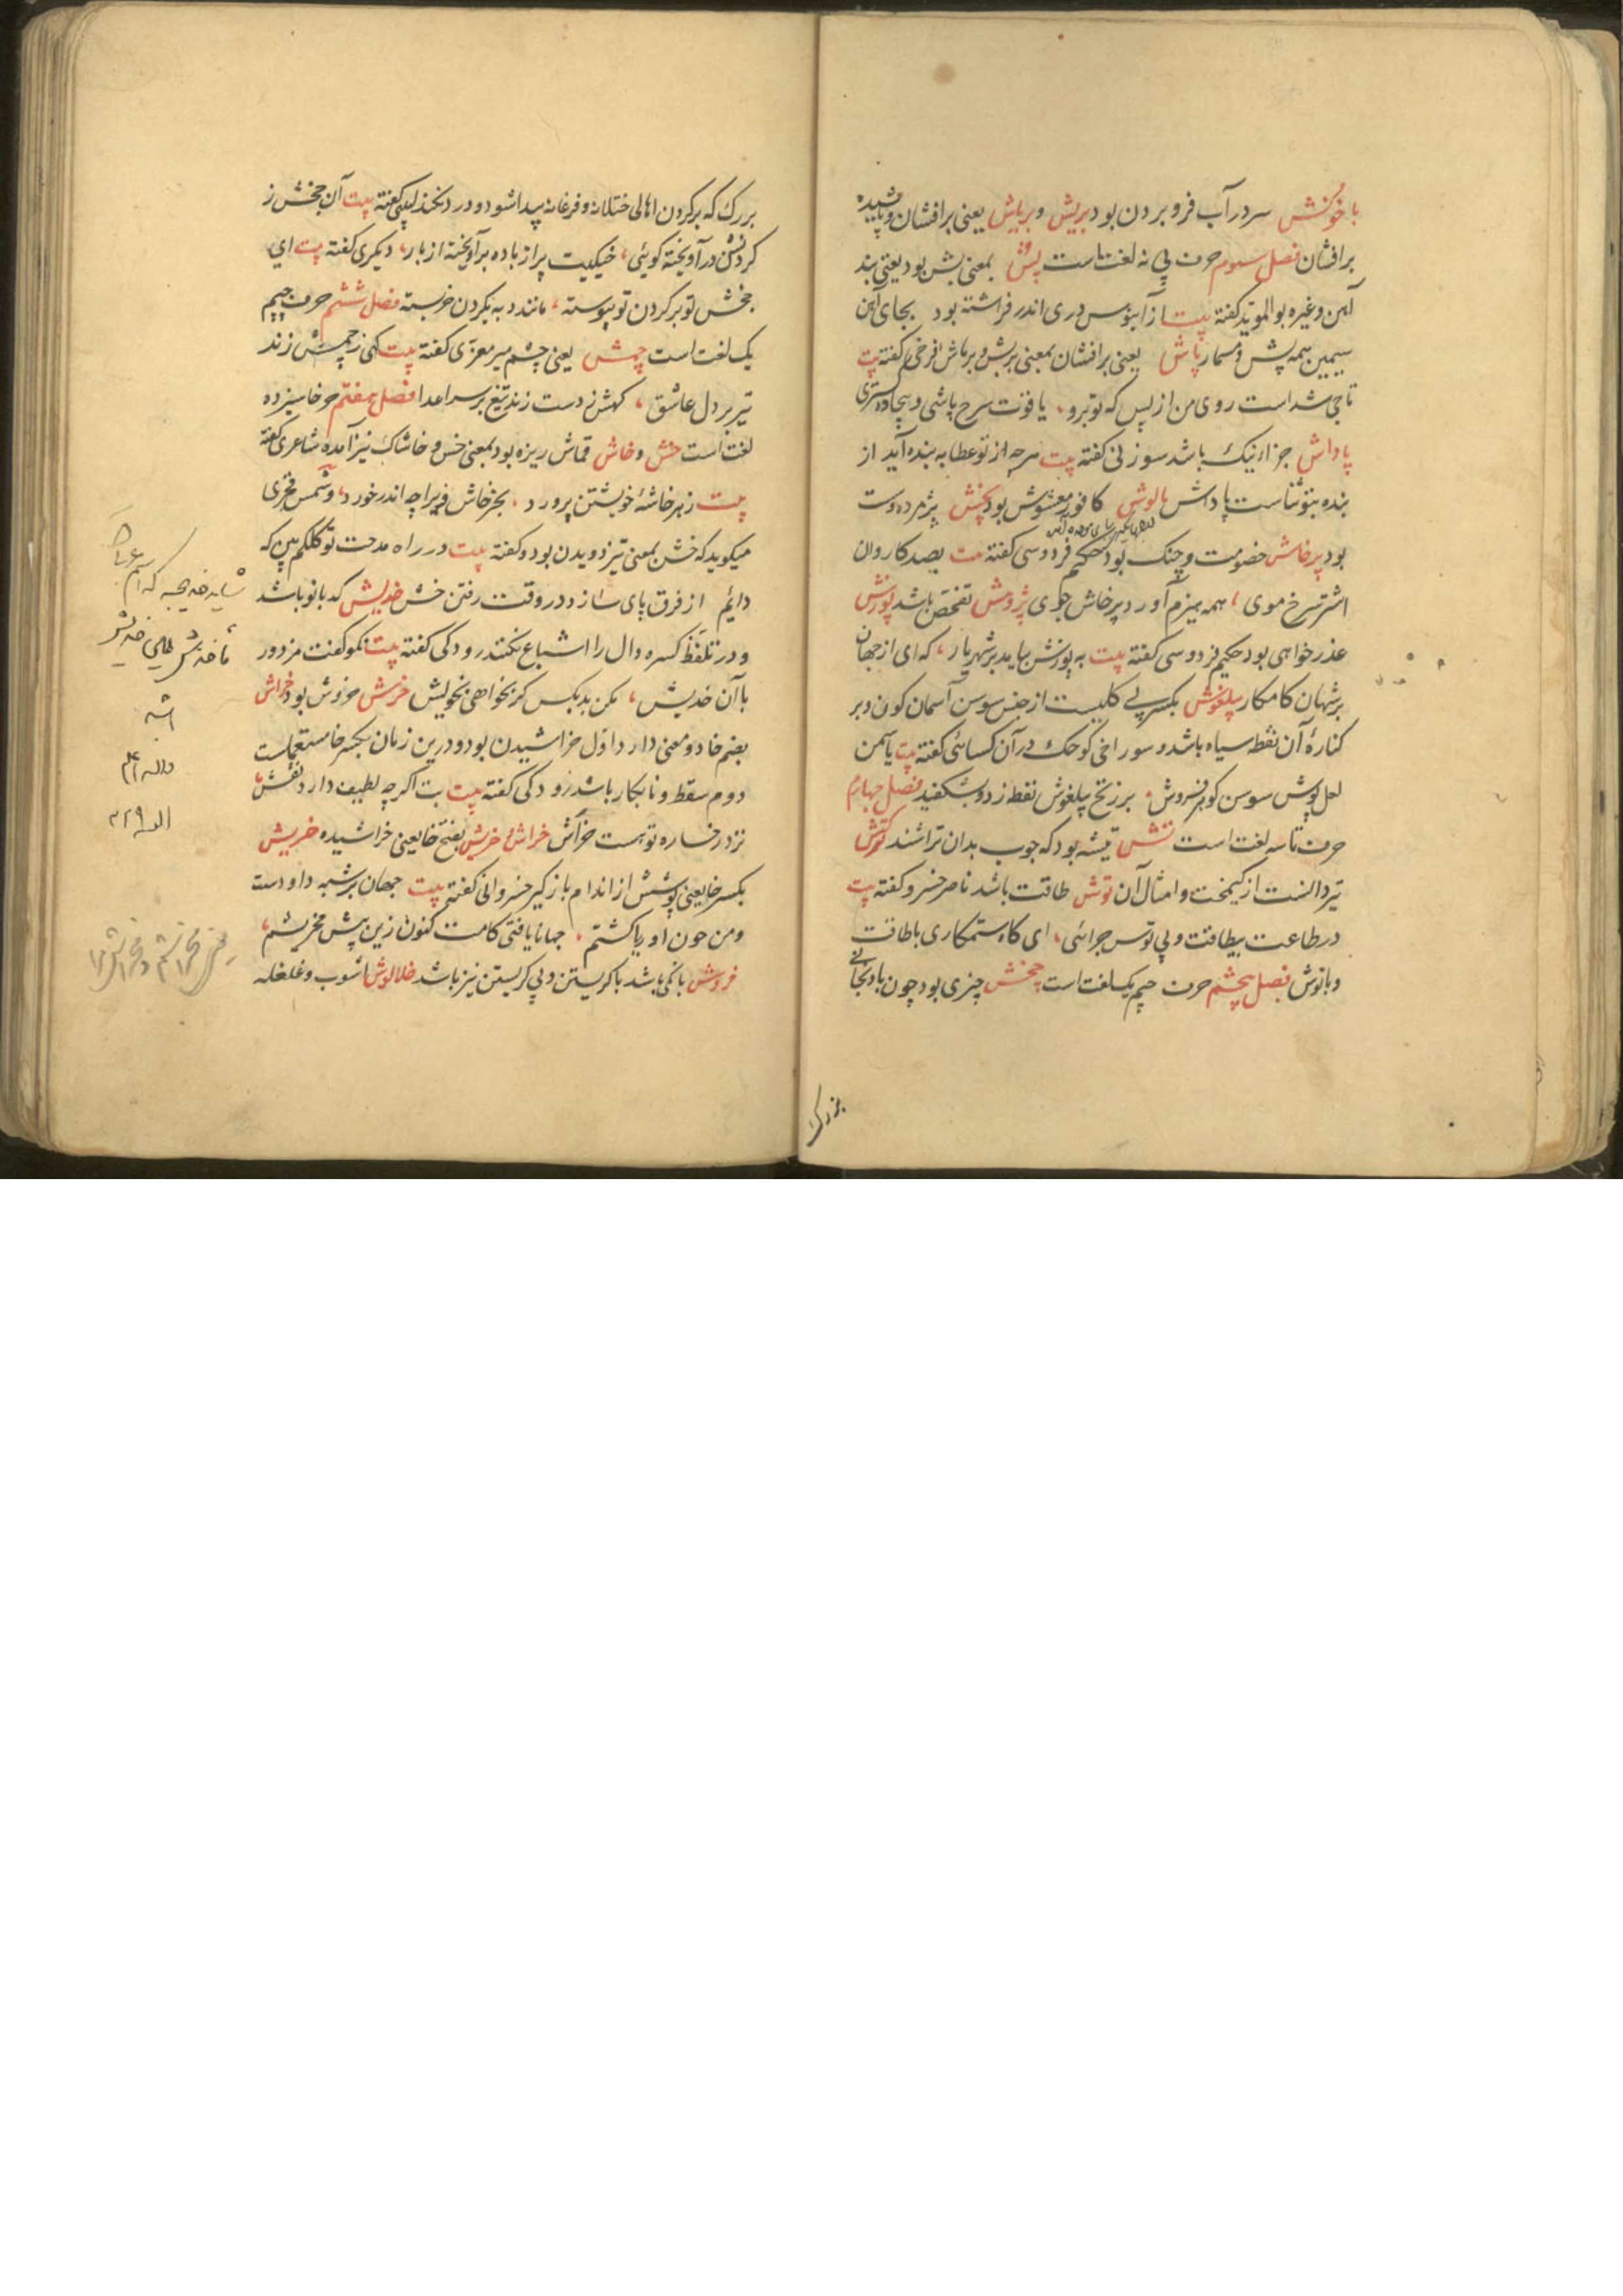 باخوشش سر در آب فرو بردن بود بریش و برپاش یعنی برافشان و پاشیده
برافشان فصل سوم حرف پی نه لغت است پش بمعنی بش بود یعنی بند
آهن و غیره بوالموید کفته بیت از آبنوس دری اندر فراشته بود بجای آهن
سیمین همه پش و مسمار پاش یعنی برافشان بمعنی بربش و برپاش فرخی کفته بیت
تاجی شد است روی من از بس که تو برو یاقوت سرخ پاشی و بیجاده کستری
پاداش جزاء نیک باشد سوزنی کفته بیت هر چه از تو عطا به بنده آید از
بنده بتو ثناست پاداش پالوش کافور مغشوش بود پخش پژمرده و ست
بود پرخاش خصومت و جنک بود حکیم فردوسی کفته بیت بصد کاروان
اشتر سرخ موی همه هیزم آورد پرخاش جوی پژوهش تفحص باشد پوزش
عذر خواهی بود حکیم فردوسی کفته بیت به پوزش بیامد بر شهریار که ای از جهان
بر شهان کامکار پیلغوش بکسر پی کلیست از جنس سوسن آسمان کون و بر
کناره آن نقطه سیاه باشد و سوراخی کوچک در آن کسائی کفته بیت یاسمن
لعل پوش سوسن کوهر فروش بر زنخ پیلغوش نقطه زد و بشکفید فصل چهارم
حرف تا سه لغت است تش تیشه بود که چوب بدان تراشند ترکش
تیردانست از کیمخت و امثال آن توش طاقت باشد ناصر خسرو کفته بیت
در طاعت بیطاقت و بی توش چرائی ای کاه ستمکاری با طاقت
و با توش فصل پنجم حرف جیم یک لغت است جخش چیزی بود چون بادنجانی
بزرک
بزرک که بر کردن اهالی ختلان و فرغانه پیدا شود و درد نکند لبیبی کفته بیت آن جخش ز
کردنش در آویخته کوئی خیکیست پر از باده بر آویخته از بار دیکری کفته بیت ای
جخش تو بر کردن تو پیوسته مانند دبه بکردن خر بسته فصل ششم حرف چیم
یک لغت است چمش یعنی چشم میر معزی کفته بیت کهی ز چمش زند
تیر بر دل عاشق کهش ز دست زند تیغ بر سر اعدا فصل هفتم حرف خا سیزده
لغت است خش و خاش قماش ریزه بود بمعنی خس و خاشاک نیز آمده شاعری کفته
بیت ز بهر خاشه خویشتن پرورد بجز خاش ویرا چه اندر خورد و شمس فخری
میکوید که خش بمعنی تیز دویدن بود و کفته بیت در راه مدحت تو کلکم بین که
دایم از فرق پای سازد در وقت رفتن خش خدیش کد بانو باشد
و در تلفظ کسره دال را اشباع نکنند رودکی کفته بیت نکو کفت مزدور
با آن خدیش مکن بد بکس کر نخواهی بخویش خرش خروش بود خراش
بضم خا دو معنی دارد اول خراشیدن بود و درین زمان بکسر خا مستعملست
دوم سقط و نابکار باشد رودکی کفته بیت بت اکر چه لطیف دارد نقش
نزد رخساره تو هست خراش خراش خریش بفتح خا یعنی خراشیده خریش
بکسر خا یعنی پوشش از اندام باز کیر خسروانی کفته بیت جهان بر شبه داودست
و من چون اوریا کشتم جهانا یافتی کامت کنون زین پیش مخریشم
خروش بانکی باشد با کریستن و بی کریستن نیز باشد خلالوش آشوب و غلغله